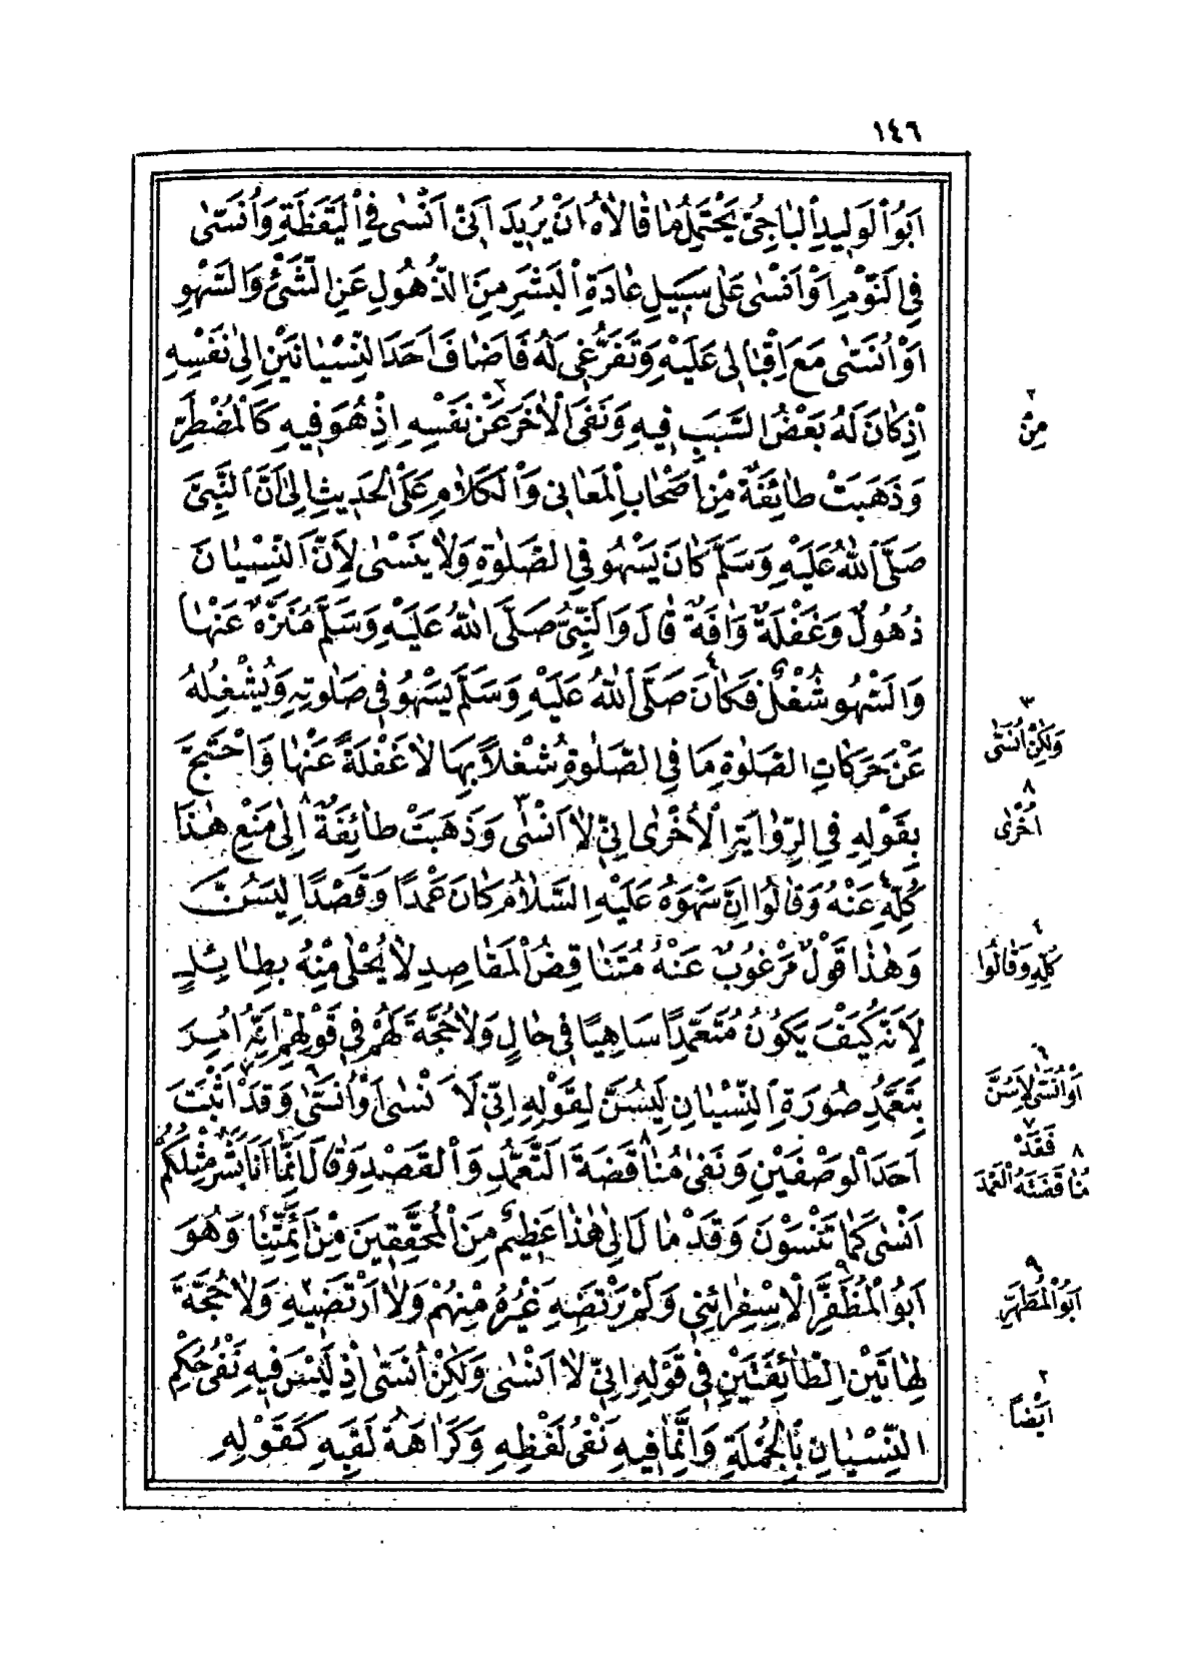 ١٤٦
اَبُو الْوَلِيدِ الْبَاجِيُّ يَحْتَمِلُ مَا قَالَاهُ اَنْ يُرِيدَ اَنِّي اَنْسٰى فِي الْيَقَظَةِ وَاُنَسّٰى
فِي النَّوْمِ اَوْ اَنْسٰى عَلٰى سَبِيلِ عَادَةِ الْبَشَرِ مِنَ الذُّهُولِ عَنِ الشَّيْءِ وَالسَّهْوِ
اَوْ اُنَسّٰى مَعَ اِقْبَالِي عَلَيْهِ وَتَفَرُّغِي لَهُ فَاَضَافَ اَحَدَ النِّسْيَانَيْنِ اِلٰى نَفْسِهِ
اِذْ كَانَ لَهُ بَعْضُ السَّبَبِ فِيهِ وَنَفَى الْاٰخَرَ عَنْ٢ نَفْسِهِ اِذْ هُوَ فِيهِ كَالْمُضْطَرِّ
وَذَهَبَتْ طَائِفَةٌ مِنْ اَصْحَابِ الْمَعَانِي وَالْكَلَامِ عَلَى الْحَدِيثِ اِلٰى اَنَّ النَّبِيَّ
صَلَّى اللّٰهُ عَلَيْهِ وَسَلَّمَ كَانَ يَسْهُو فِي الصَّلٰوةِ وَلَا يَنْسٰى لِاَنَّ النِّسْيَانَ
ذُهُولٌ وَغَفْلَةٌ وَاٰفَةٌ قَالَ وَالنَّبِيُّ صَلَّى اللّٰهُ عَلَيْهِ وَسَلَّمَ مُنَزَّهٌ عَنْهَا
وَالسَّهْوُ شُغْلٌ فَكَانَ صَلَّى اللّٰهُ عَلَيْهِ وَسَلَّمَ يَسْهُو فِي صَلٰوتِهِ وَيُشْغِلُهُ
عَنْ حَرَكَاتِ الصَّلٰوةِ مَا فِي الصَّلٰوةِ شُغْلًا بِهَا لَا غَفْلَةً عَنْهَا وَاحْتَجَّ
بِقَوْلِهِ فِي الرِّوَايَةِ الْاُخْرٰى اِنِّي لَا اَنْسٰى٣ وَذَهَبَتْ طَائِفَةٌ٨ اِلٰى مَنْعِ هٰذَا
كُلِّهِ٤ عَنْهُ وَقَالُوا اِنَّ سَهْوَهُ عَلَيْهِ السَّلَامُ كَانَ عَمْدًا وَقَصْدًا لِيَسُنَّ
وَهٰذَا قَوْلٌ مَرْغُوبٌ عَنْهُ مُتَنَاقِضُ الْمَقَاصِدِ لَا يُحْلٰى مِنْهُ بِطَائِلٍ
لِاَنَّهُ كَيْفَ يَكُونُ مُتَعَمِّدًا سَاهِيًا فِي حَالٍ وَلَا حُجَّةَ لَهُمْ فِي قَوْلِهِمْ اِنَّهُ اُمِرَ
بِتَعَمُّدِ صُورَةِ النِّسْيَانِ لِيَسُنَّ لِقَوْلِهِ اِنِّي لَاَنْسٰى اَوْ٦ اُنَسّٰى وَقَدْ٧ اَثْبَتَ
اَحَدَ الْوَصْفَيْنِ وَنَفٰى مُنَاقَضَةَ٨ التَّعَمُّدِ وَالْقَصْدِ وَقَالَ اِنَّمَا اَنَا بَشَرٌ مِثْلُكُمْ
اَنْسٰى كَمَا تَنْسَوْنَ وَقَدْ مَالَ اِلٰى هٰذَا عَظِيمٌ مِنَ الْمُحَقِّقِينَ مِنْ اَئِمَّتِنَا وَهُوَ
اَبُو الْمُظَفَّرِ٩ الْاِسْفِرَائِنِي وَلَمْ يَرْتَضِهِ غَيْرُهُ مِنْهُمْ وَلَا اَرْتَضِيهِ٢ وَلَا حُجَّةَ
لِهَاتَيْنِ الطَّائِفَتَيْنِ فِي قَوْلِهِ اِنِّي لَا اَنْسٰى وَلٰكِنْ اُنَسّٰى اِذْ لَيْسَ فِيهِ نَفْيُ حُكْمِ
النِّسْيَانِ بِالْجُمْلَةِ وَاِنَّمَا فِيهِ نَفْيُ لَفْظِهِ وَكَرَاهَةُ لَقَبِهِ كَقَوْلِهِ
٢
مِنْ
٣
وَلٰكِنْ اُنَسّٰى
٨
اُخْرٰى
٤
كُلِّهِ وَقَالُوا
٦
اَوْ اُنَسّٰى لِاَسُنَّ
٧
فَقَدْ
٨
مُنَاقَضَتَهُ الْعَمْدَ
٩
اَبُو الْمُطَهَّرِ
٢
اَيْضًا